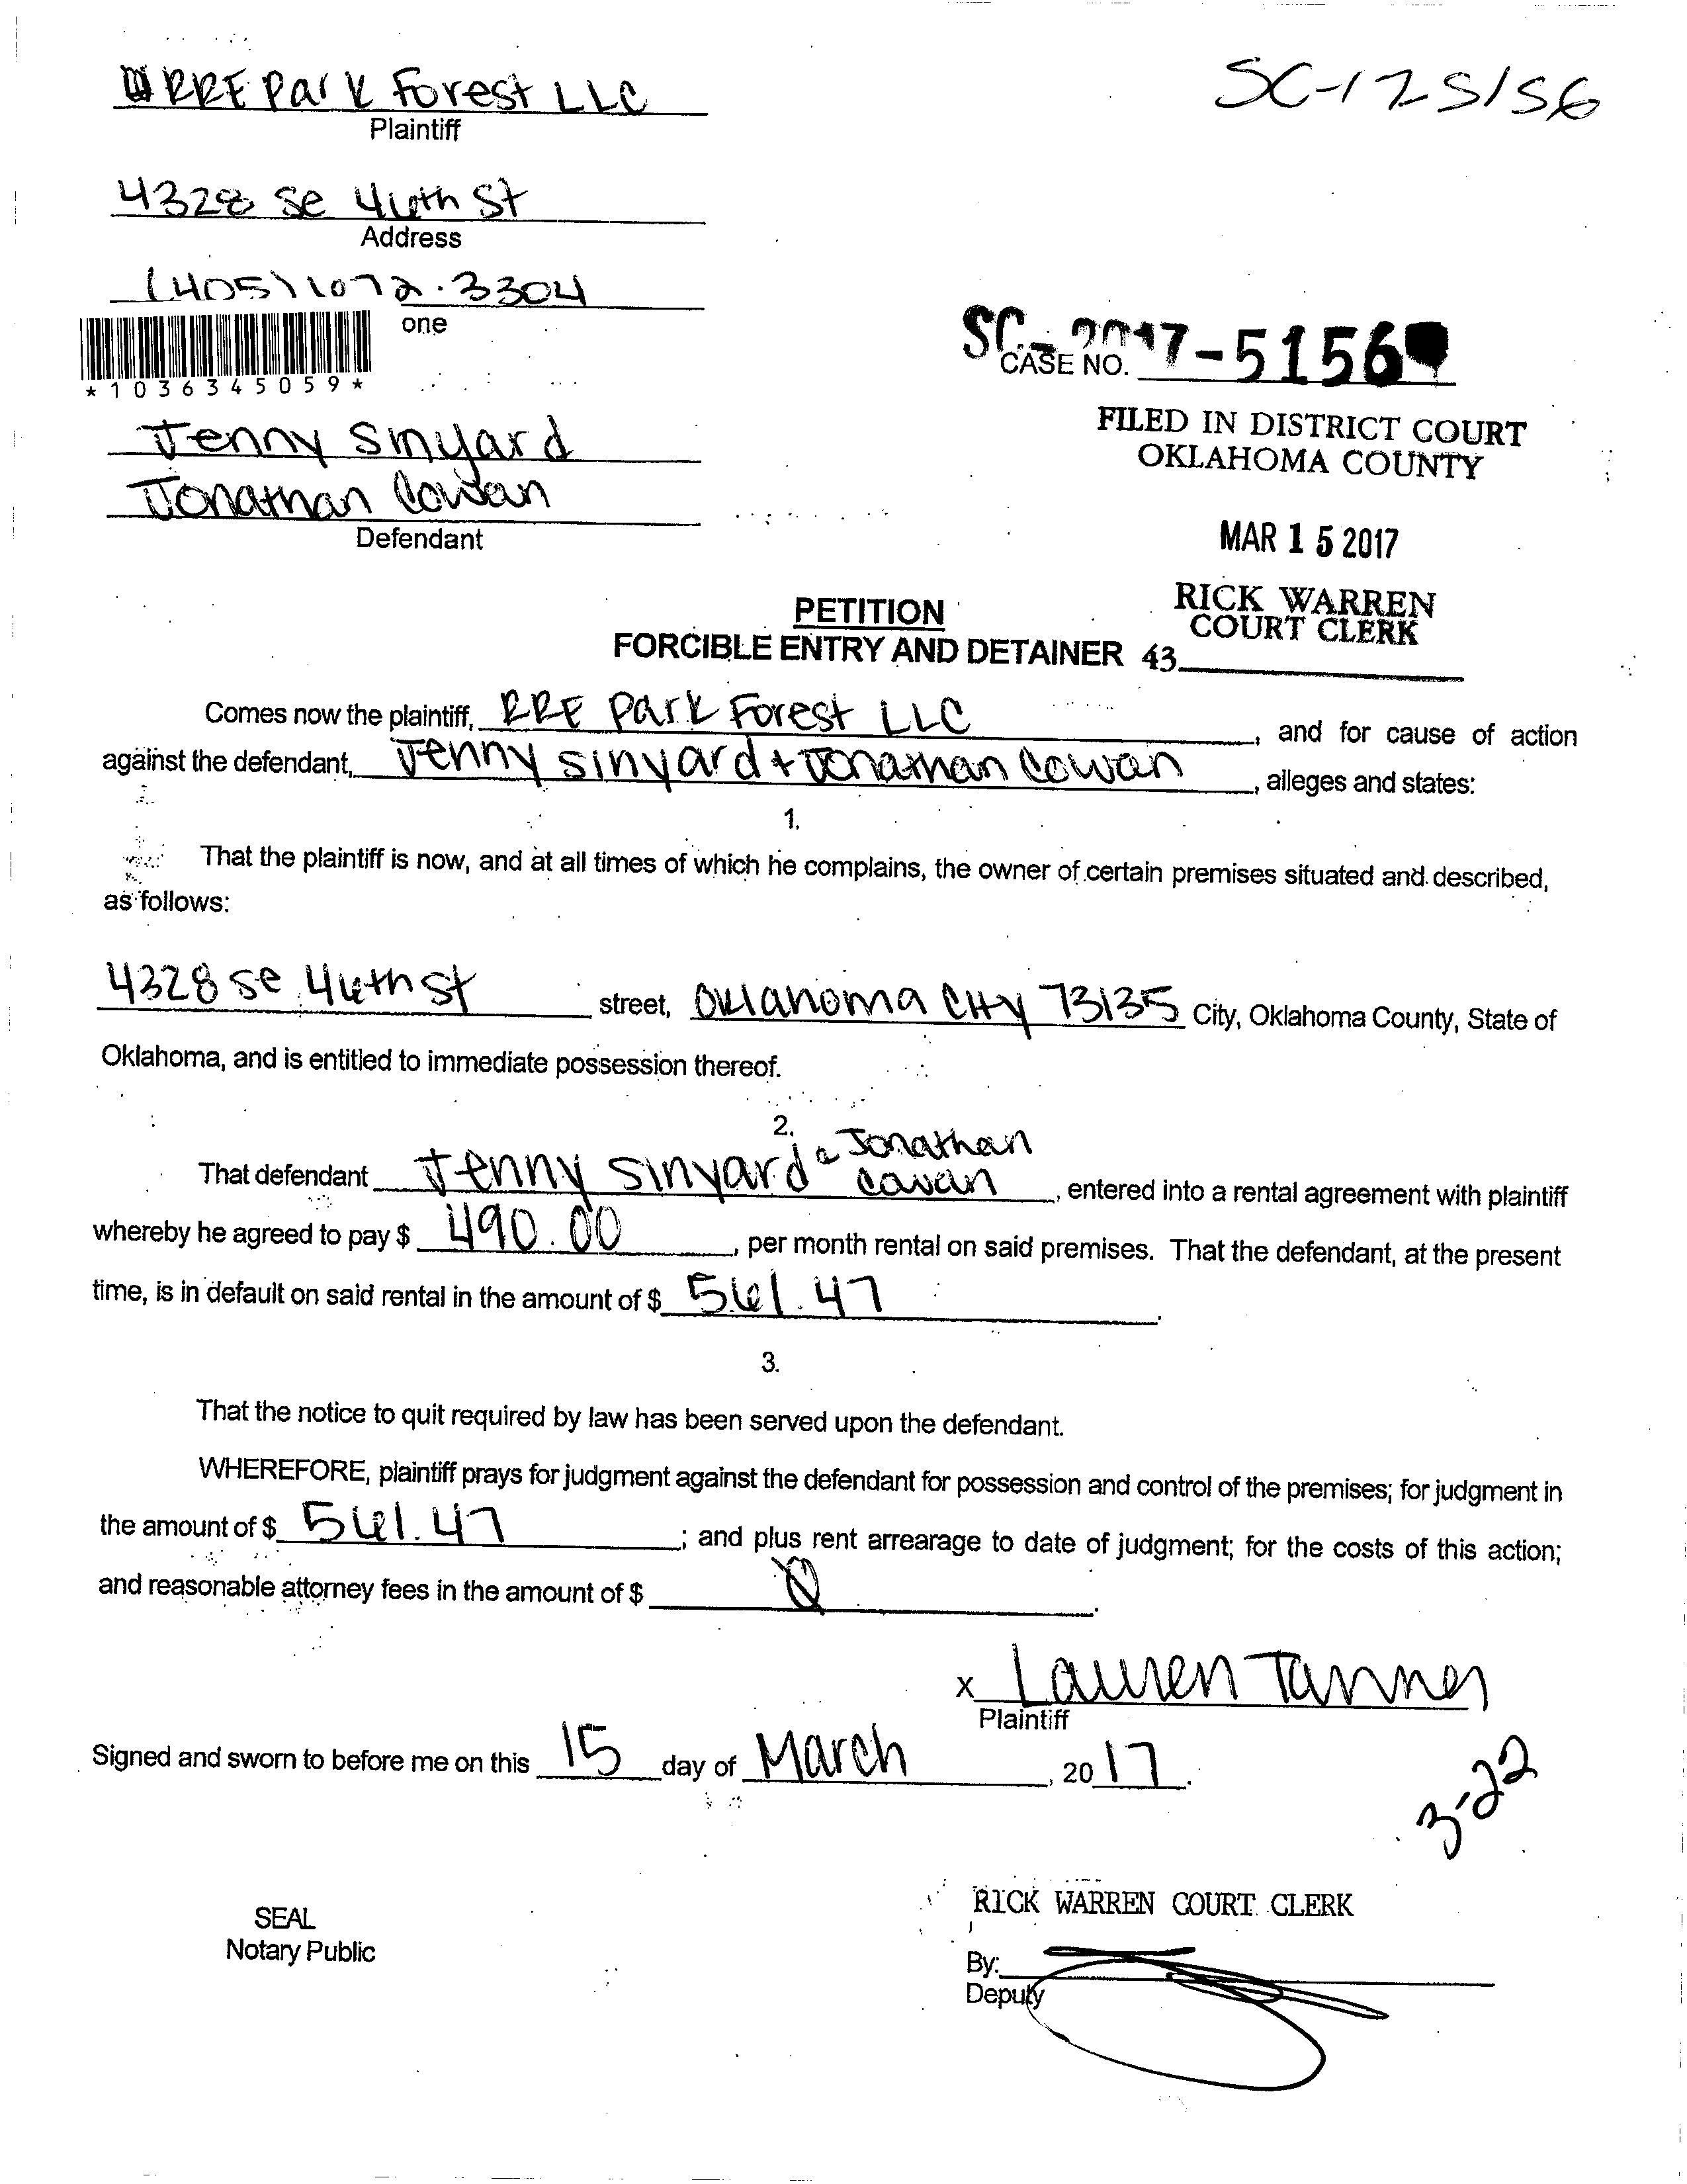 RRE Park Forest LLC
Plaintiff
SC-17 5156
4328 SE 46th St
Address
(405) 672.3304
one
*1036345059*
SC-2017-5156
CASE NO.
Jenny Sinyard
Jonathan Cowan
Defendant
FILED IN DISTRICT COURT
OKLAHOMA COUNTY
MAR 15 2017
RICK WARREN
COURT CLERK
43
PETITION
FORCIBLE ENTRY AND DETAINER
Comes now the plaintiff, RRE Park Forest LLC, and for cause of action
against the defendant, Jenny Sinyard + Jonathan Cowan, alleges and states:
1.
That the plaintiff is now, and at all times of which he complains, the owner of certain premises situated and described,
as follows:
4328 SE 46th St street, Oklahoma City 73135 City, Oklahoma County, State of
Oklahoma, and is entitled to immediate possession thereof.
2.
That defendant Jenny Sinyard & Jonathan Cowan, entered into a rental agreement with plaintiff
whereby he agreed to pay $ 490.00, per month rental on said premises. That the defendant, at the present
time, is in default on said rental in the amount of $ 561.47.
3.
That the notice to quit required by law has been served upon the defendant.
WHEREFORE, plaintiff prays for judgment against the defendant for possession and control of the premises; for judgment in
the amount of $ 561.47; and plus rent arrearage to date of judgment; for the costs of this action;
and reasonable attorney fees in the amount of $ 0.
x Lauren Tanner
Plaintiff
Signed and sworn to before me on this 15 day of March, 2017.
3-22
SEAL
Notary Public
RICK WARREN COURT CLERK
By:
Deputy